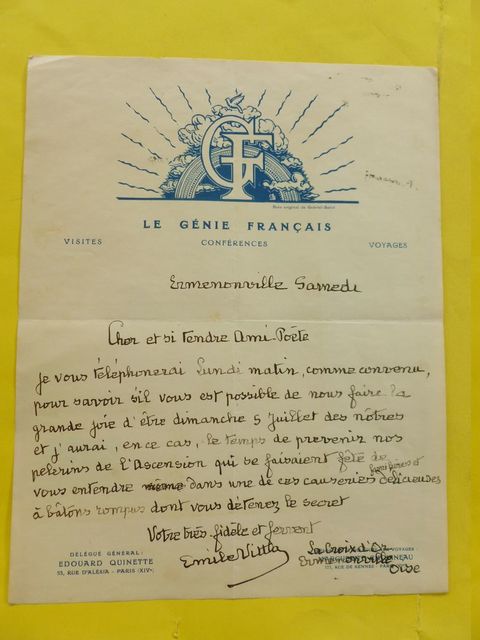 GF
Bois original de Gabriel-Belot
LE GÉNIE FRANÇAIS
VISITES CONFÉRENCES VOYAGES
Ermenonville Samedi
Cher et si tendre Ami-Poète
Je vous téléphonerai Lundi matin, comme convenu,
pour savoir s'il vous est possible de nous faire la
grande joie d'être dimanche 5 Juillet des nôtres
et j'aurai, en ce cas, le temps de prevenir nos
pelerins de l'Ascension qui se faisaient fête de
vous entendre dans une de ces causeries et délicieuses
à bâtons rompus dont vous détenez le secret
Votre très fidèle et fervent
Emile Vitta
La Croix d'Or
Ermenonville
Oise
DÉLÉGUÉ GÉNÉRAL :
EDOUARD QUINETTE
53, RUE D'ALÉSIA - PARIS (XIVe)
VOYAGES :
127, RUE DE RENNES -